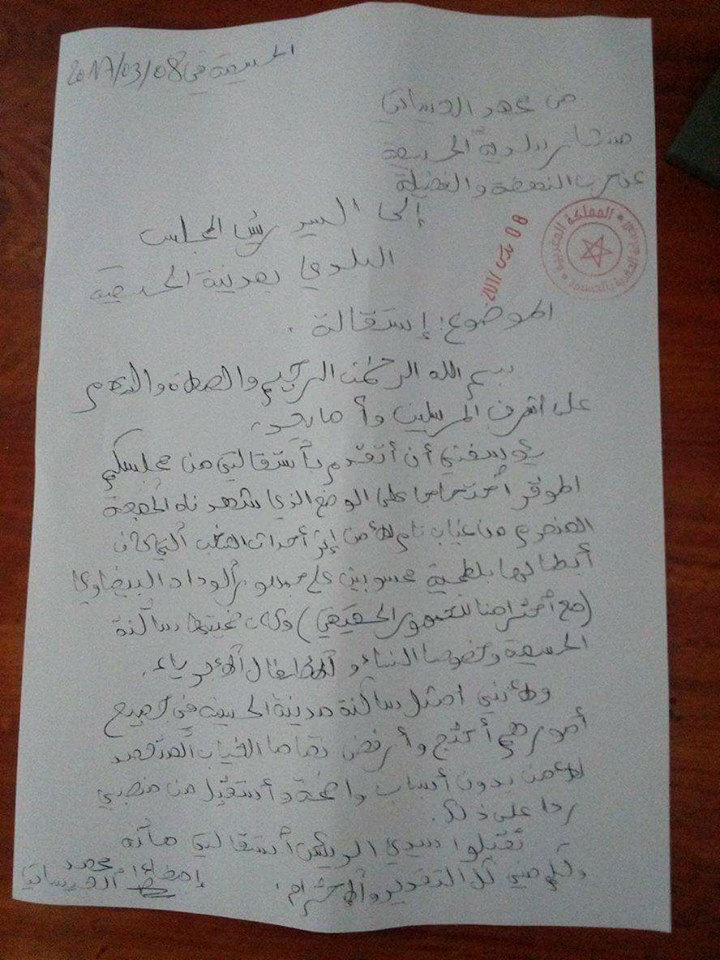 الحسيمة في 2017/03/08
من محمد الحساني
مستشار ببلدية الحسيمة
عن حزب النهضة والفضيلة
إلى السيد رئيس المجلس
البلدي بمدينة الحسيمة
المملكة المغربية
08 مارس 2017
الموضوع: إستقالة.
بسم الله الرحمن الرحيم والصلاة والسلام
على أشرف المرسلين وأما بعد،
يؤسفني أن أتقدم بأستقالتي من مجلسكم
الموقر أحتجاجا على الوضع الذي شهدناه الجمعة
المنصرم من غياب تام للأمن إثر أحداث الشغب التي كان
أبطالها بلطجية محسوبين على جمهور الوداد البيضاوي
(مع أحترامنا للجمهور الحقيقي) وكان ضحيتها ساكنة
الحسيمة وخصوصا النساء و الأطفال الأبرياء.
ولأنني أمثل ساكنة مدينة الحسيمة في جميع
أمورهم أحتج وأرفض تماما الغياب المتعمد
للأمن بدون أسباب واضحة وأستقيل من منصبي
ردا على ذلك.
تقبلوا سيدي الرئيس أستقالتي هاته
ولكم مني كل التقدير والأحترام.
إمضاء: محمد
الحساني